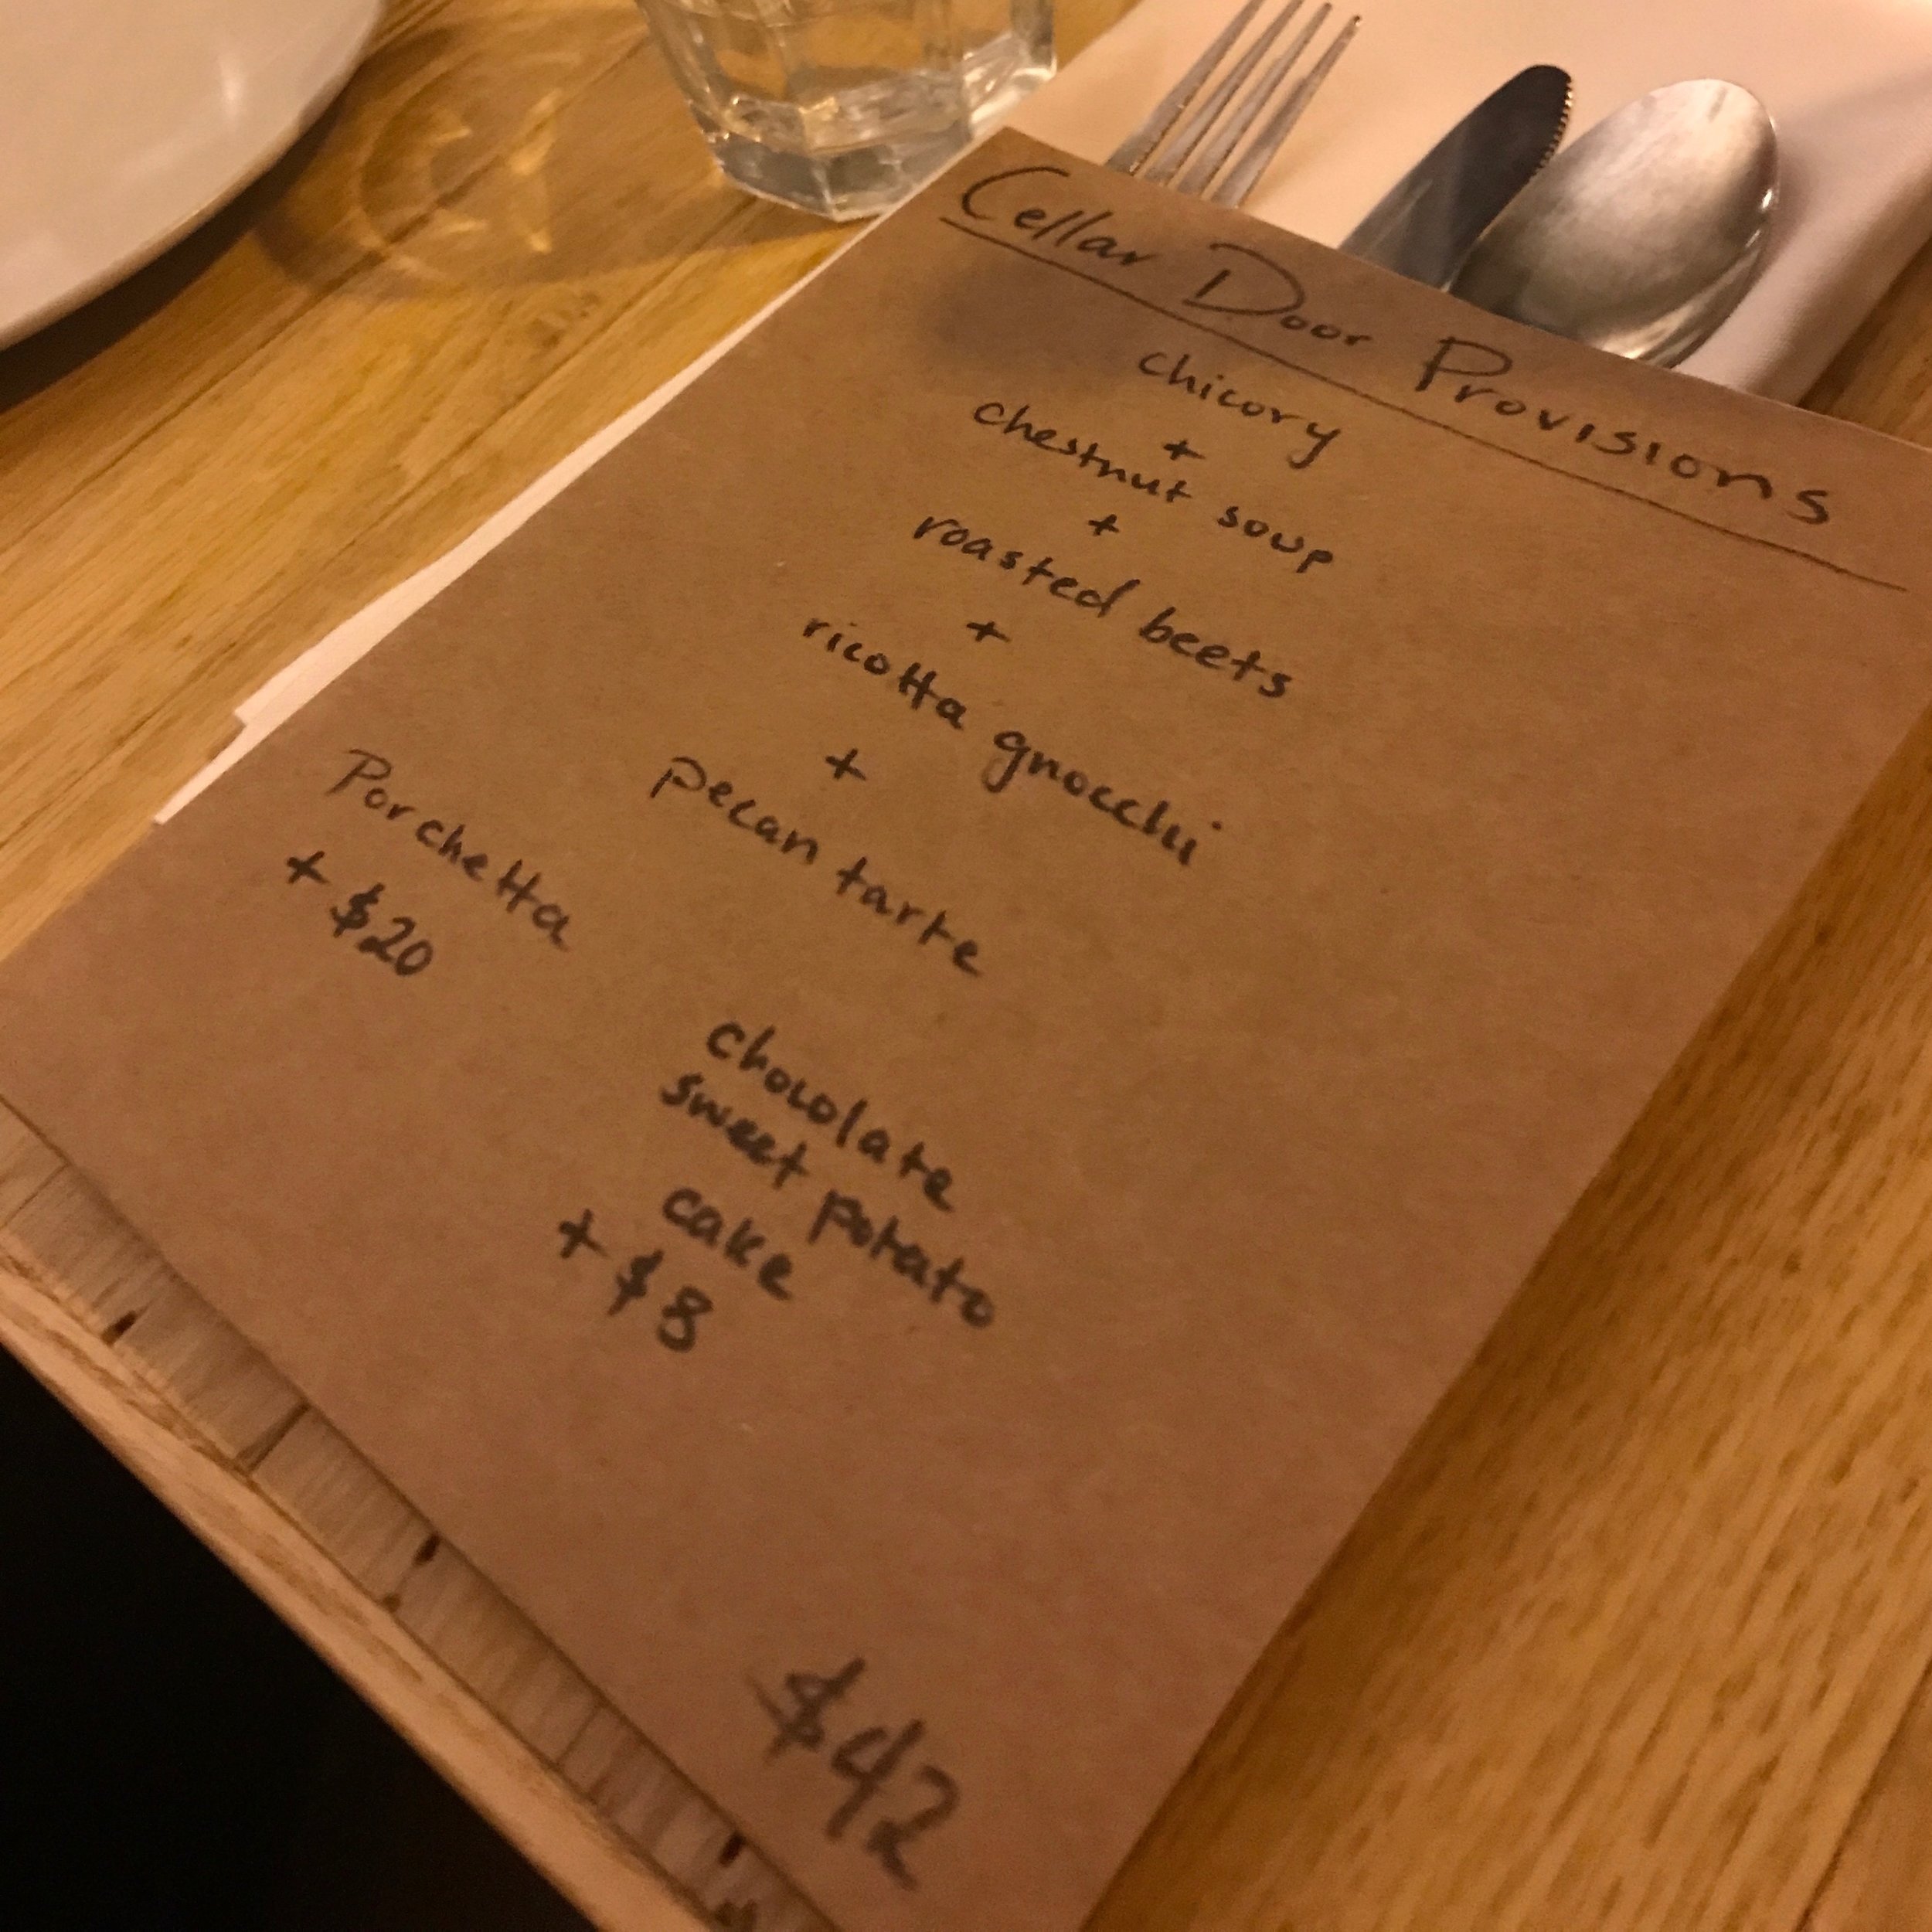 Cellar Door Provisions
chicory
+
chestnut soup
+
roasted beets
+
ricotta gnocchi
+
pecan tarte
Porchetta
+ $20
chocolate
sweet potato
cake
+ $8
$42